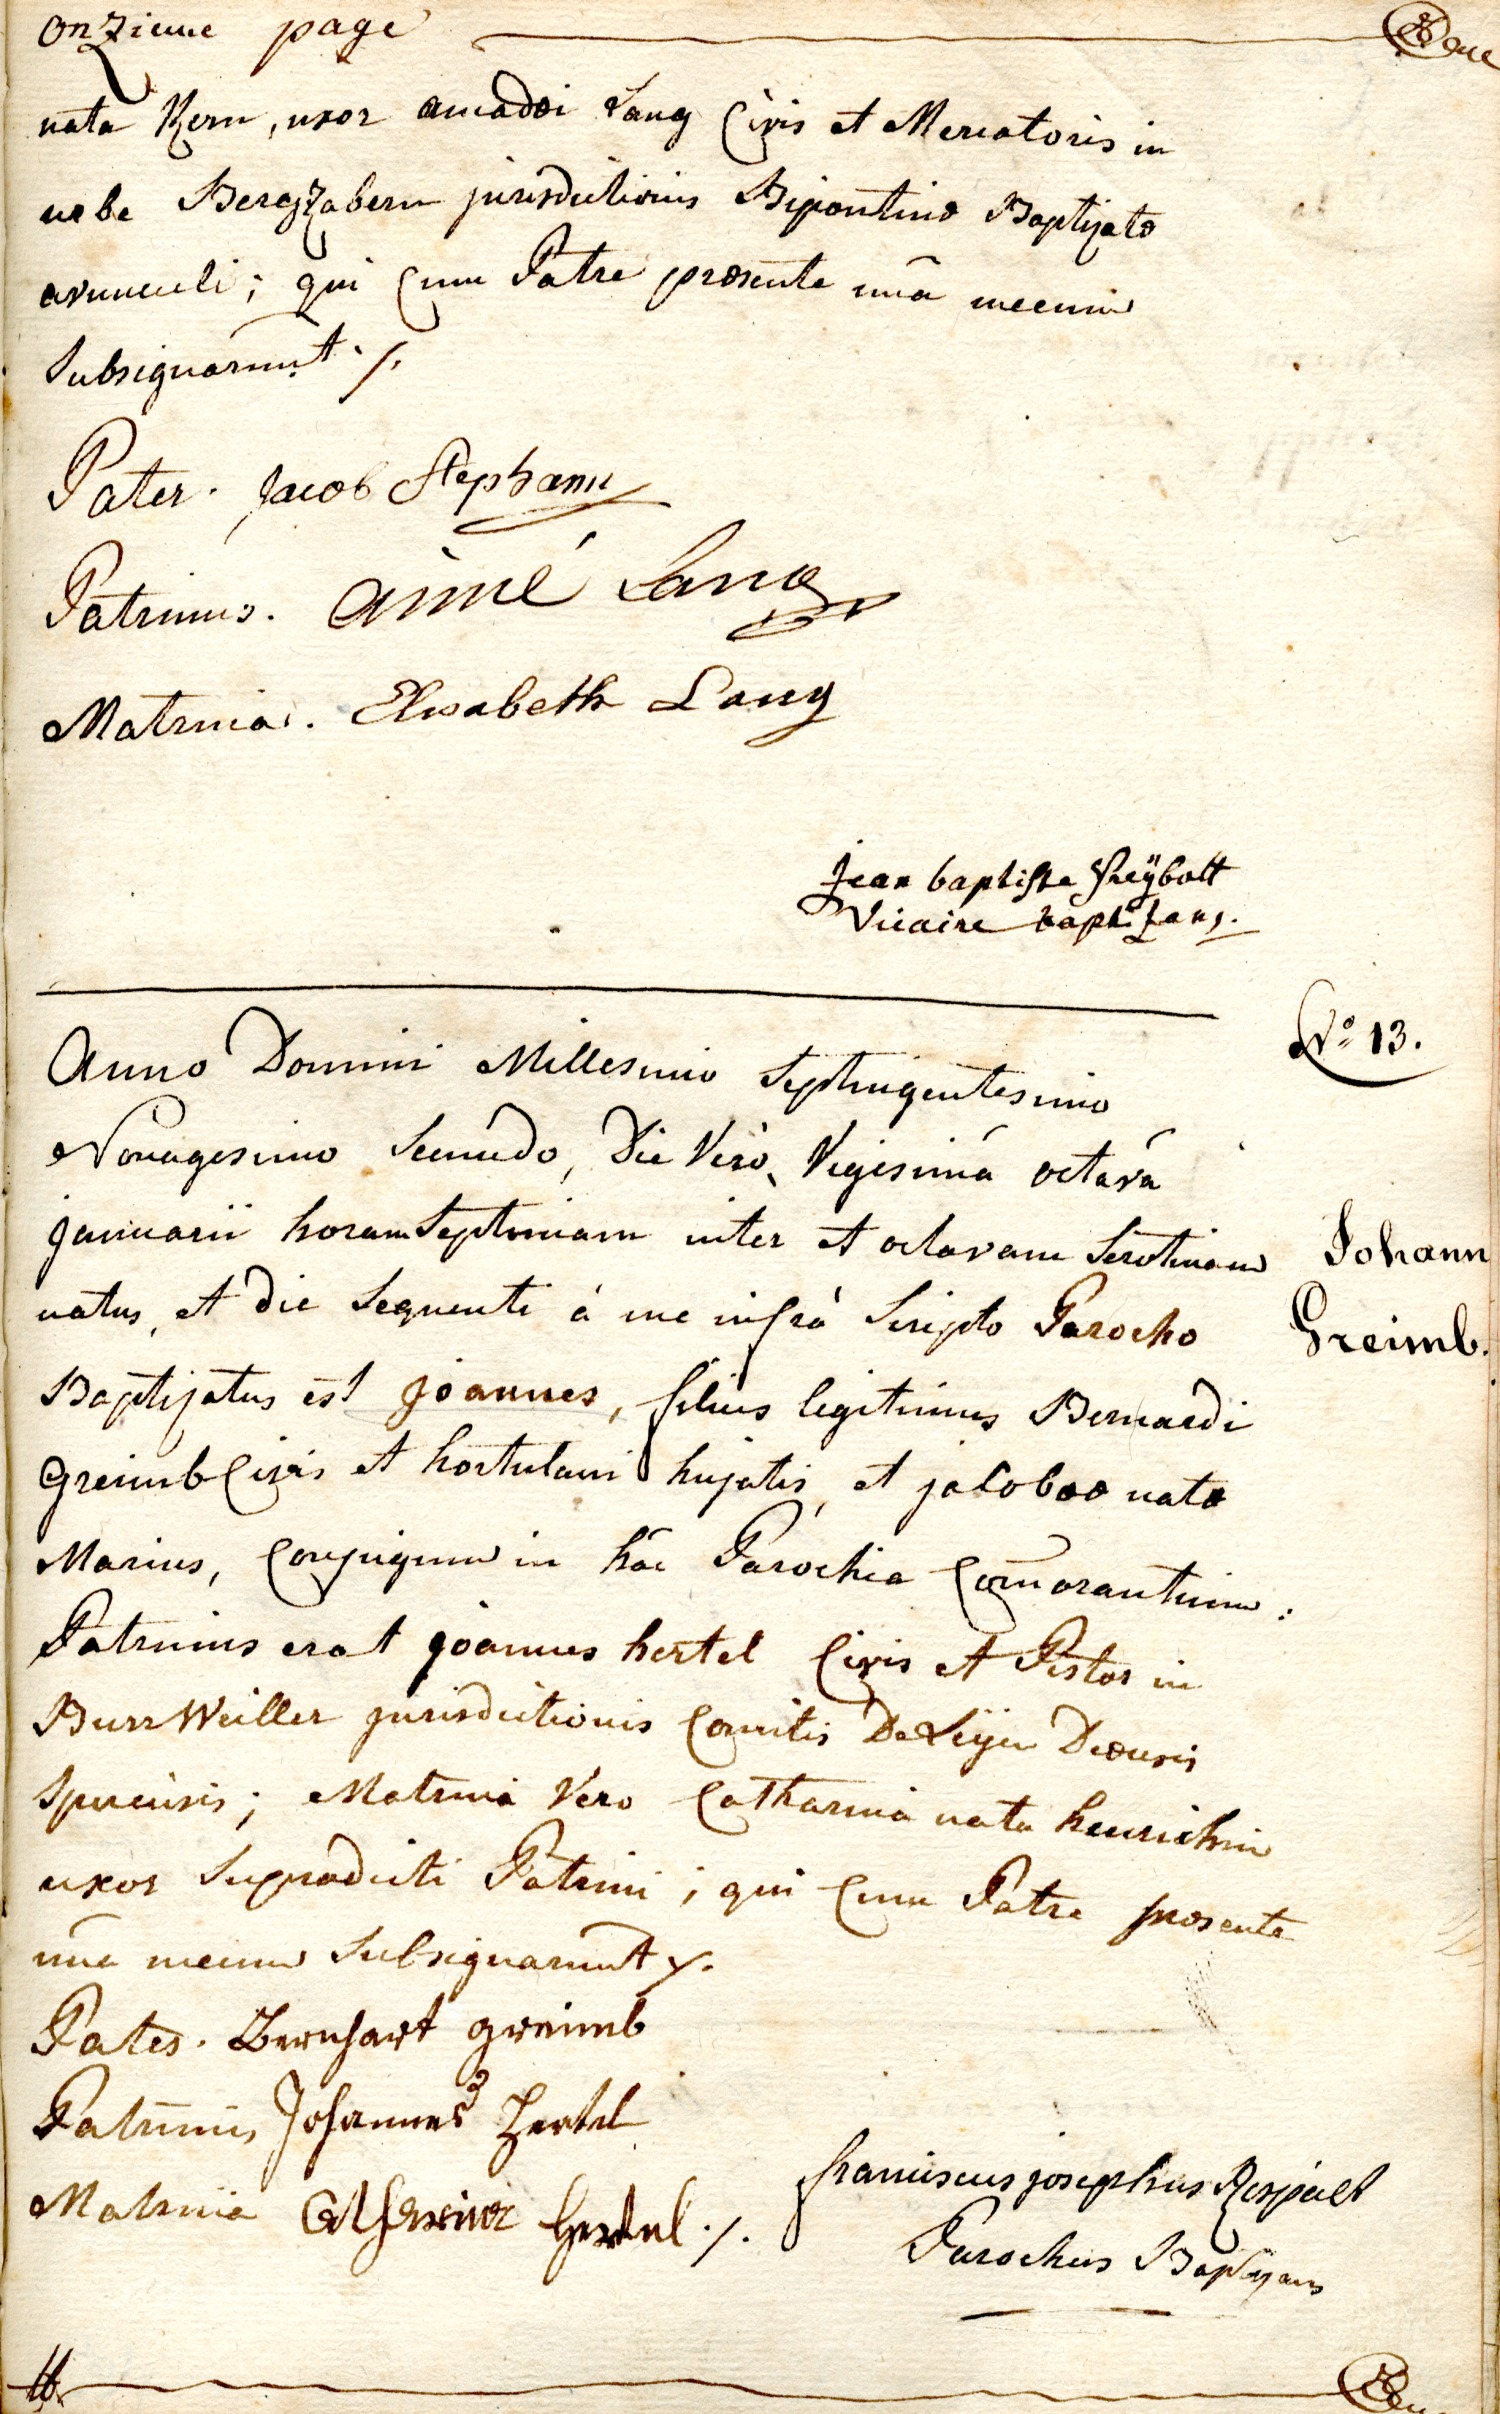 onzieme page
nata Kern, uxor amadei Lang Civis et Mercatoris in
urbe Bergzabern jurisdictionis Bipontinæ Baptizatæ
avunculi; qui Cum Patre præsente unà mecum
Subsignarunt ./.
Pater. jacob Stephann
Patrinus. aimé Lang
Matrina. Elisabeth Lang
jean baptiste Seÿbolt
Vicaire baptizans.
N.º 13.
Anno Domini Millesimo Septingentesimo
Nonagesimo Secundo, Die Vero, Vigesimâ octavâ
januarii horam Septimam inter et octavam Serotinam
natus, et die Sequenti à me infrà Scripto Parocho
Baptizatus est joannes, filius legitimus Bernardi
Greimb Civis et hortulani hujatis, et jacobææ natæ
Marius, Conjugum in hâc Parochia Com̄orantium:
Johann
Greimb.
Patrinus erat joannes hertel Civis et Pistor in
BurrWeiller jurisdictionis Comitis De Leÿen Diœcesis
Spirensis; Matrina Vero Catharina nata henrichin
uxor Supradicti Patrini; qui Cum Patre præsente
unà mecum Subsignarunt ./.
Pater. Bernhart greimb
Patrinus Johannes Hertel
Matrina Catharina Hertel ./.
franciscus josephus Respalt
Parochus Baptizans